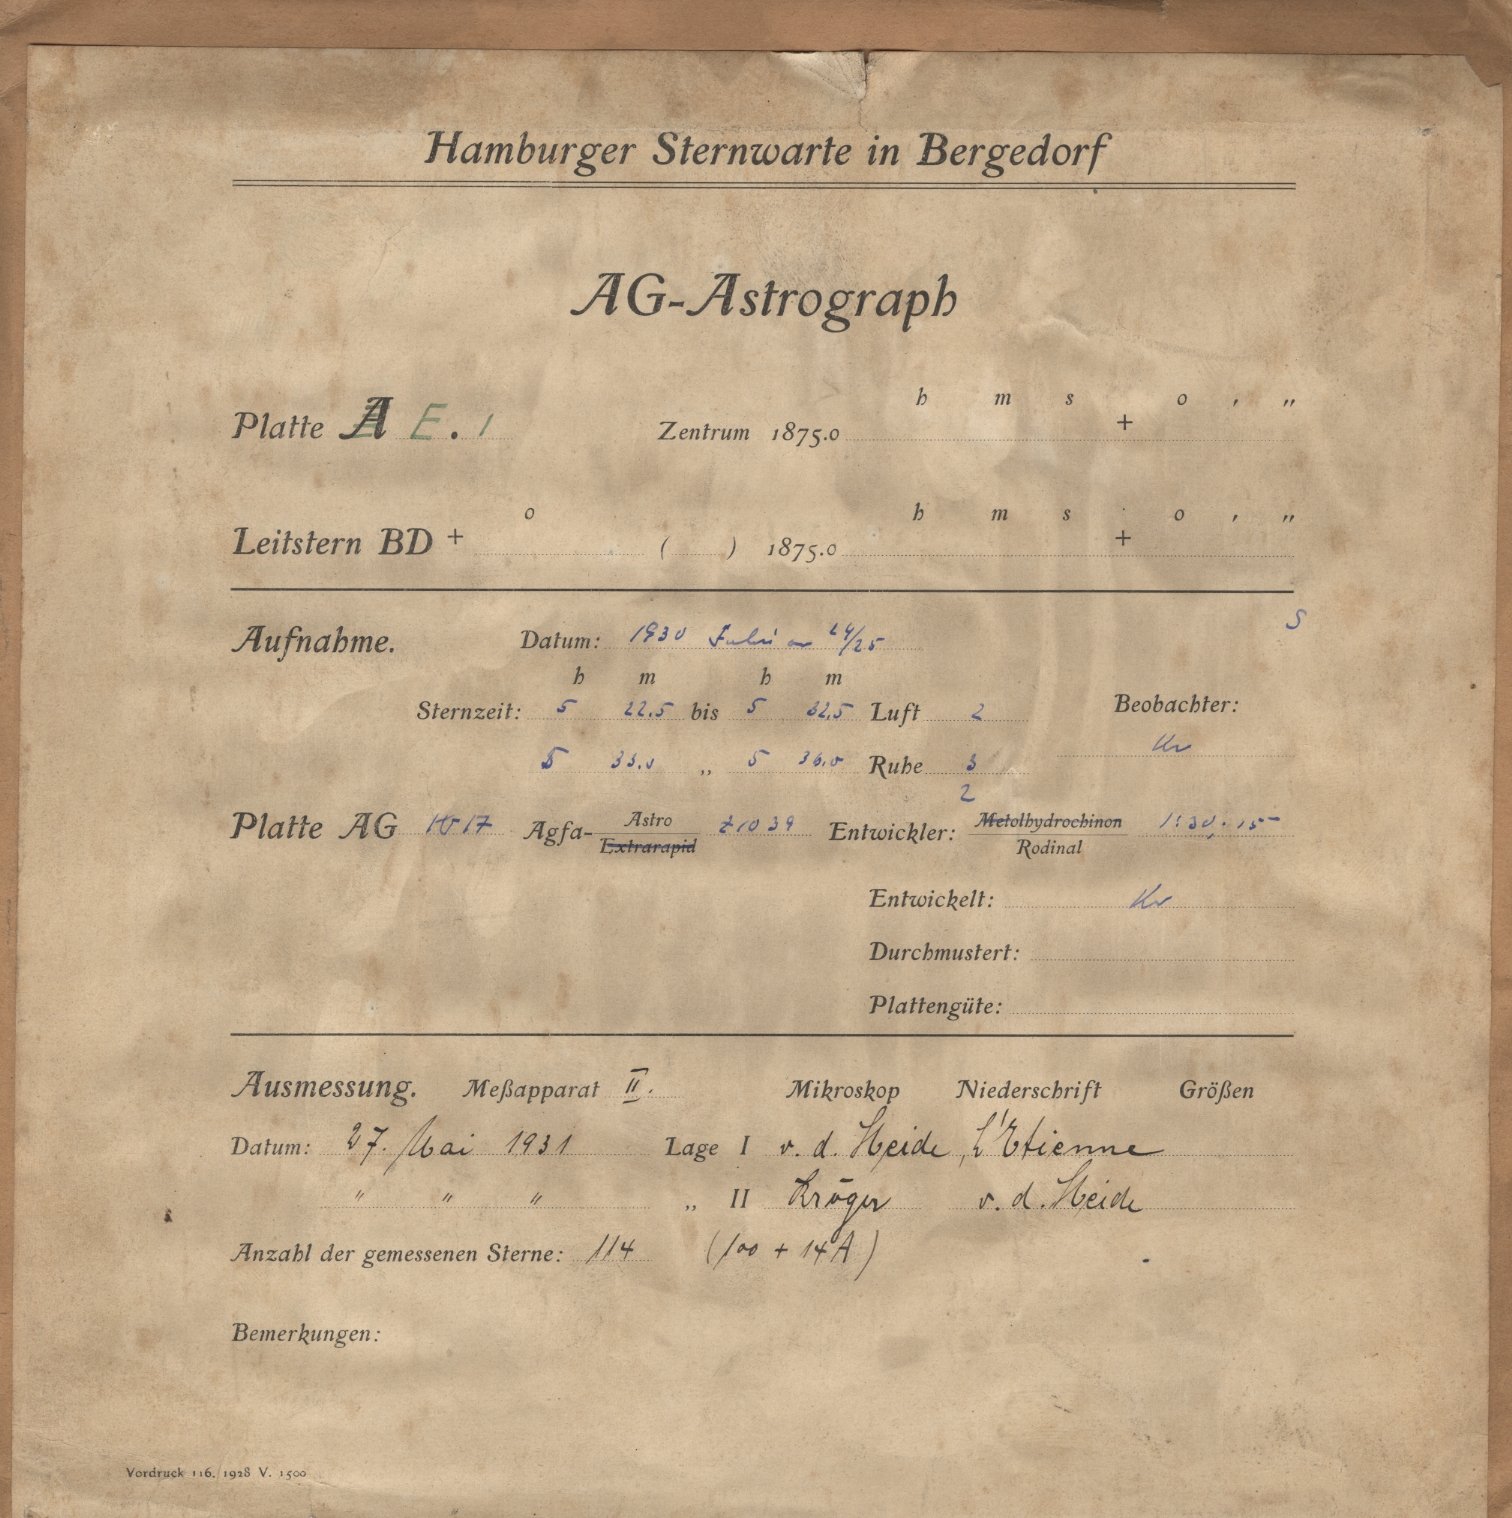 Hamburger Sternwarte in Bergedorf
AG-Astrograph
h m s o ' "
Platte A E. 1 Zentrum 1875.0 +
o h m s o ' "
Leitstern BD + ( ) 1875.0 +
S
Aufnahme. Datum: 1930 24/25
h m h m
Sternzeit: 5 22.5 bis 5 32.5 Luft 2 Beobachter:
5 33.0 „ 5 36.0 Ruhe 3 Kr
2
Platte AG 1017 Agfa- Astro Extrarapid Z1039 Entwickler: Metolhydrochinon Rodinal 1:30, 15
Entwickelt: Kr
Durchmustert:
Plattengüte:
Ausmessung. Meßapparat II. Mikroskop Niederschrift Größen
Datum: 27. Mai 1931 Lage I v. d. Heide L'Etienne
" " " „ II Kröger v. d. Heide
Anzahl der gemessenen Sterne: 114 (100 + 14A)
Bemerkungen:
Vordruck 116. 1928 V. 1500